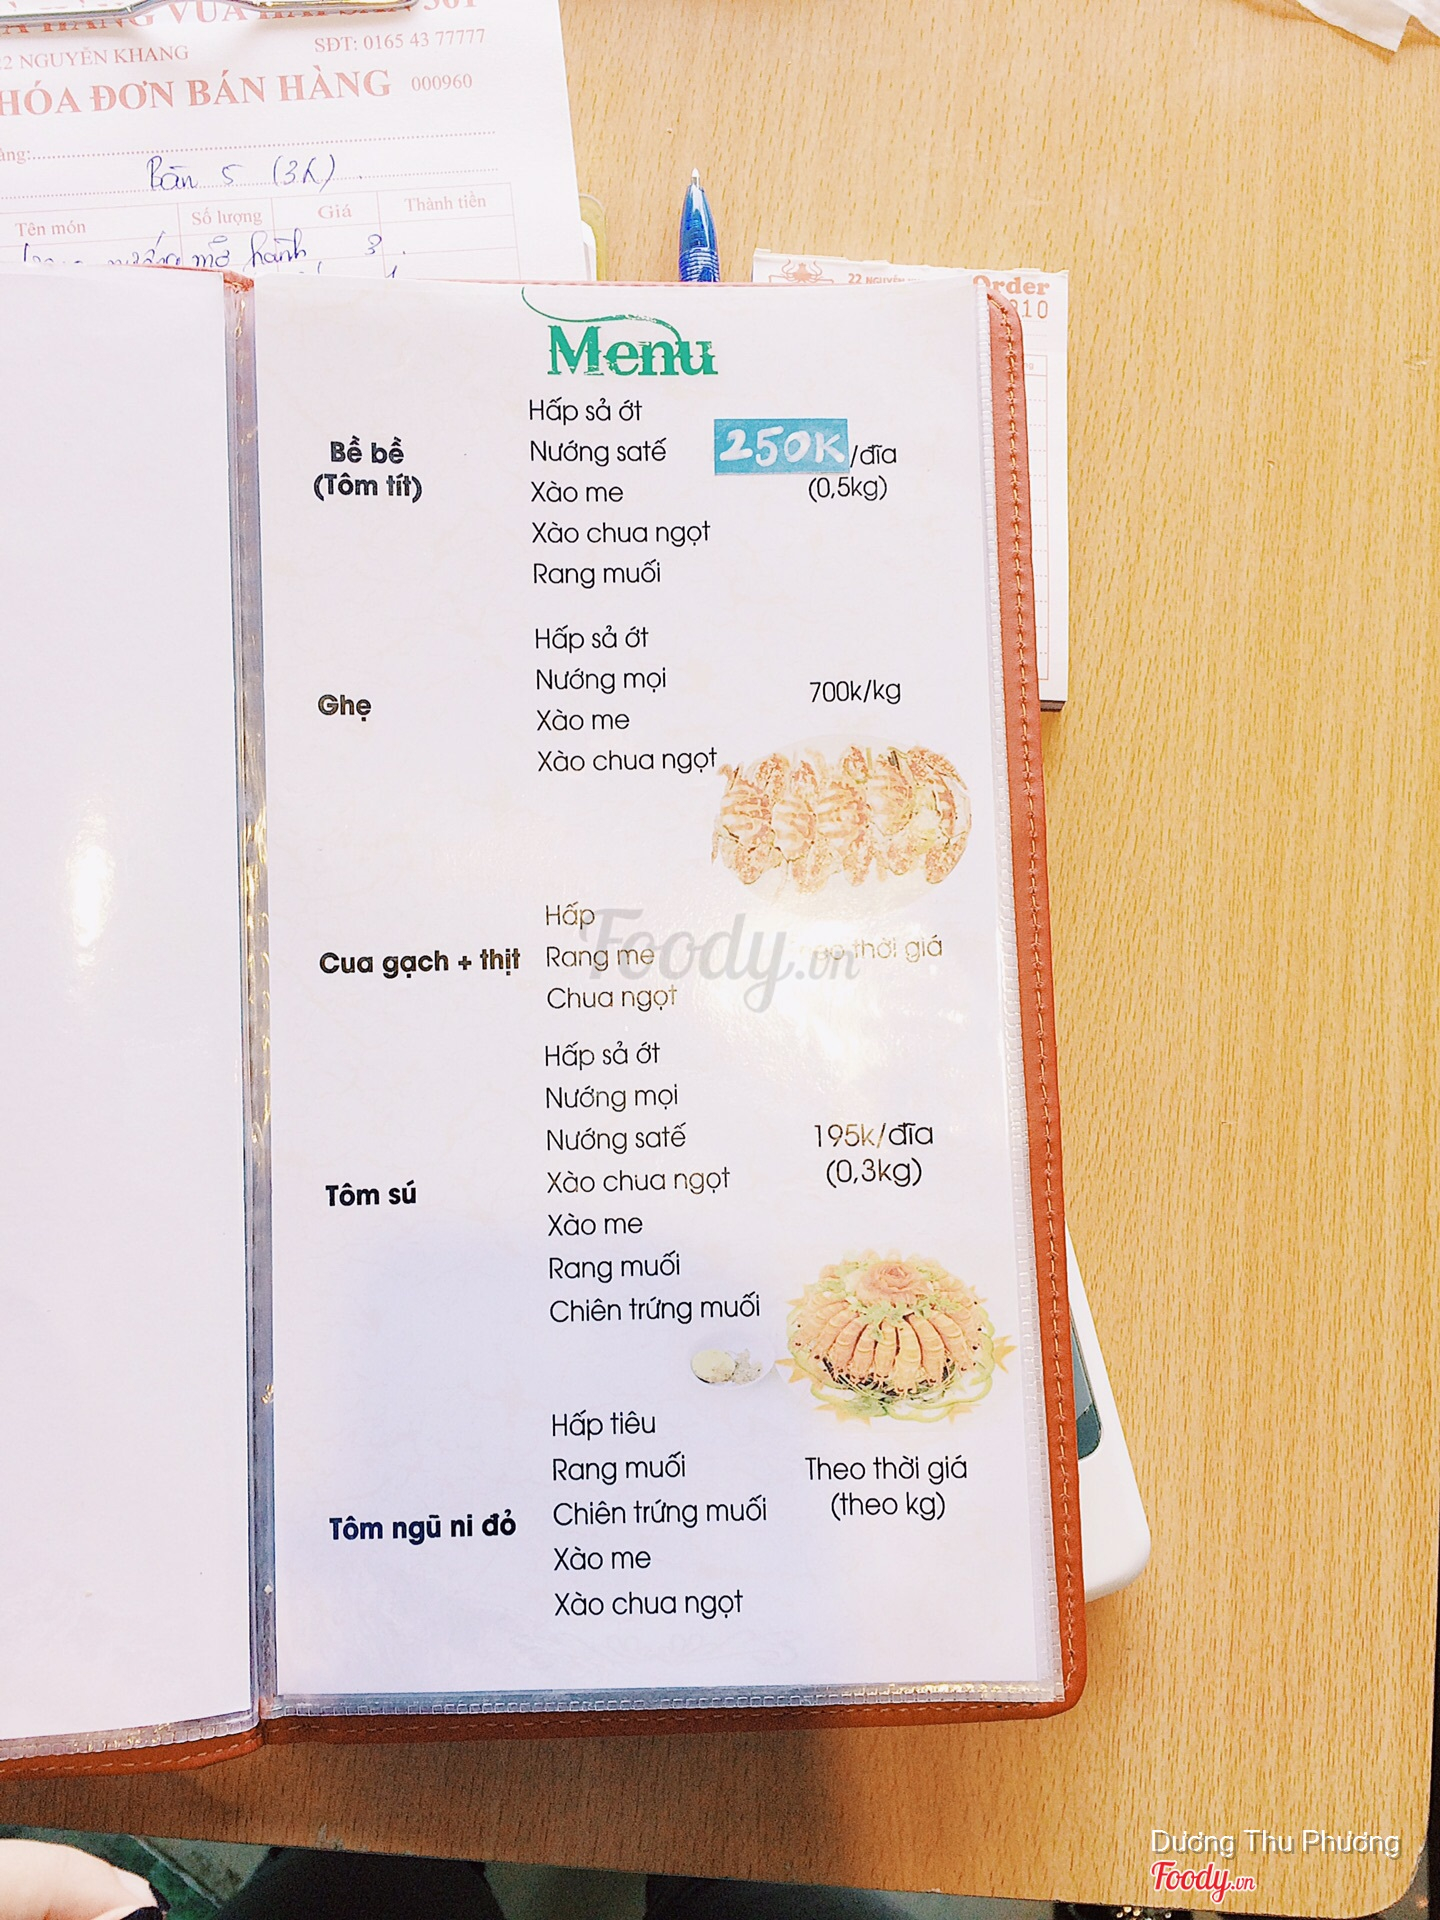 22 NGUYỄN KHANG
SĐT: 0165 43 77777
HÓA ĐƠN BÁN HÀNG
000960
Bàn 5 (3k)
Tên món
Số lượng
Giá
Thành tiền
mỡ hành 3
22 NGUYỄN
Order
Menu
Bề bề
(Tôm tít)
Hấp sả ớt
Nướng satế
Xào me
Xào chua ngọt
Rang muối
250K/đĩa
(0,5kg)
Ghẹ
Hấp sả ớt
Nướng mọi
Xào me
Xào chua ngọt
700k/kg
Cua gạch + thịt
Hấp
Rang me
Chua ngọt
thời giá
Foody.vn
Tôm sú
Hấp sả ớt
Nướng mọi
Nướng satế
Xào chua ngọt
Xào me
Rang muối
Chiên trứng muối
195k/đĩa
(0,3kg)
Tôm ngũ ni đỏ
Hấp tiêu
Rang muối
Chiên trứng muối
Xào me
Xào chua ngọt
Theo thời giá
(theo kg)
Dương Thu Phương
Foody.vn